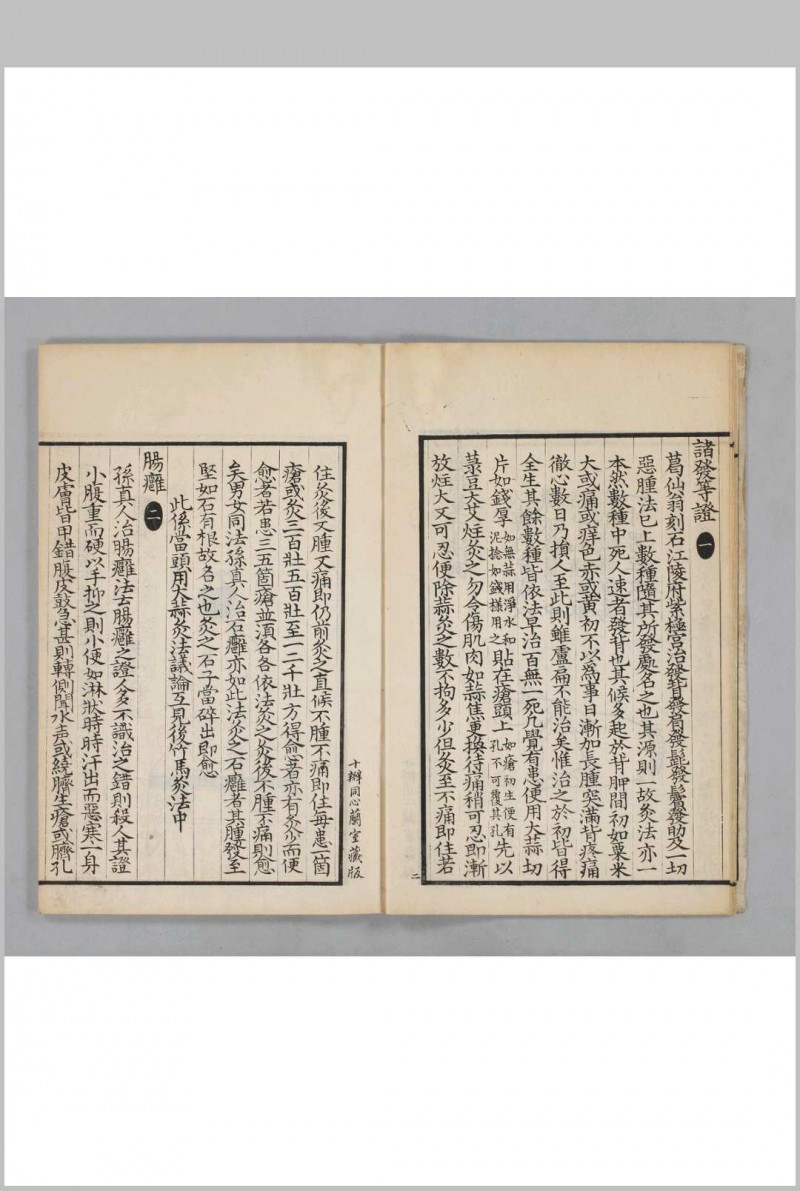 諸發等證 一
葛仙翁刻石江陵府紫極宮治發背發肩發髭發鬢發肋及一切
惡腫法已上數種隨其所發處名之也其源則一故灸法亦一
本然數種中死人速者發背也其候多起於背胛間初如粟米
大或痛或痒色亦或黃初不以爲事日漸加長腫突滿背疼痛
徹心數日乃損人至此則雖盧扁不能治矣惟治之於初皆得
全生其餘數種皆依法早治百無一死凡覺有患便用大蒜切
片如錢厚如無蒜用淨水和泥捻如錢樣用之貼在瘡頭上如瘡初生便有孔不可覆其孔先以
菉豆大艾炷灸之勿令傷肌肉如蒜焦更換待痛稍可忍即漸
放炷大又可忍便除蒜灸之數不拘多少但灸至不痛即住若
二
住灸後又腫又痛即仍前灸之直候不腫不痛即住每患一箇
瘡或灸三百壯五百壯至一二千壯方得愈者亦有灸少而便
愈者若患三五箇瘡並須各各依法灸之灸後不腫不痛則愈
矣男女同法孫真人治石癰亦如此法灸之石癰者其腫發至
堅如石有根故名之也灸之石子當碎出即愈
此係當頭用大蒜灸法議論互見後竹馬灸法中
腸癰 二
孫真人治腸癰法云腸癰之證人多不識治之錯則殺人其證
小腹重而硬以手抑之則小便如淋狀時時汗出而惡寒一身
皮膚皆甲錯腹皮鼓急甚則轉側聞水声或繞臍生瘡或臍孔
十瓣同心蘭室藏版